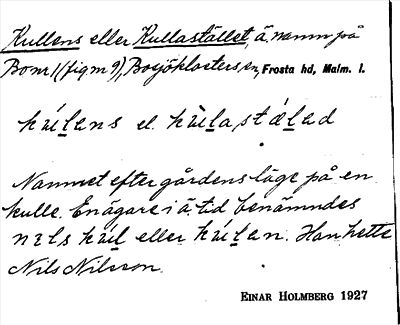 Kullens eller Kullastället, ä. namn på
Bonr 1 (fig nr 9), Bosjöklosters sn, Frosta hd, Malm. l.
kúlans el. kùlastælad
Namnet efter gårdens läge på en
kulle. En ägare i ä. tid benämndes
nels kúl eller kúlan. Han hette
Nils Nilsson.
EINAR HOLMBERG 1927